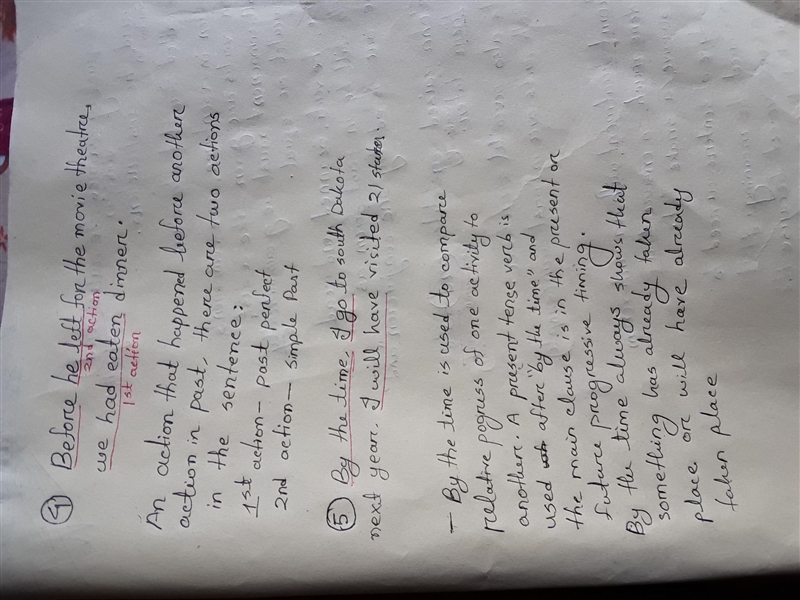 ④ Before he left for the movie theatre,
2nd action
we had eaten dinner.
1st action
An action that happened before another
action in past, there are two actions
in the sentence;
1st action - past perfect
2nd action - simple Past
⑤ By the time, I go to south Dakota
next year. I will have visited 21 states.
- By the time is used to compare
relative pogress of one activity to
another. A present tense verb is
used after "by the time" and
the main clause is in the present or
future progressive timing.
By the time always shows that
something has already taken
place or will have already
taken place